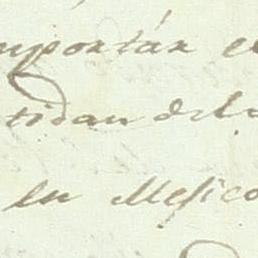 mportár e
tidan del
en Mesico